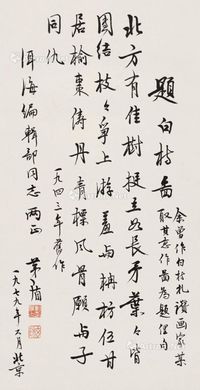 题白杨图
余曾作白杨礼讚画家某
取其意作图为题俚句
北方有佳树挺立如长矛葉々皆
团结枝々争上游羞与楠枋伍甘
居榆枣俦丹青標风骨愿与子
同仇
一九四三年旧作
洱海编辑部同志两正
茅盾
一九七九年六月北京